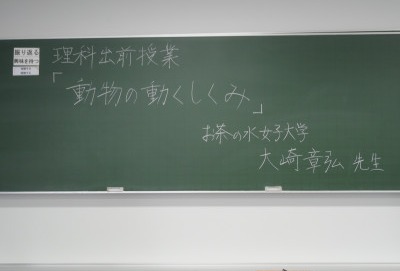 振り返る
興味を持つ
理科出前授業
「動物の動くしくみ」
お茶の水女子大学
大崎章弘 先生